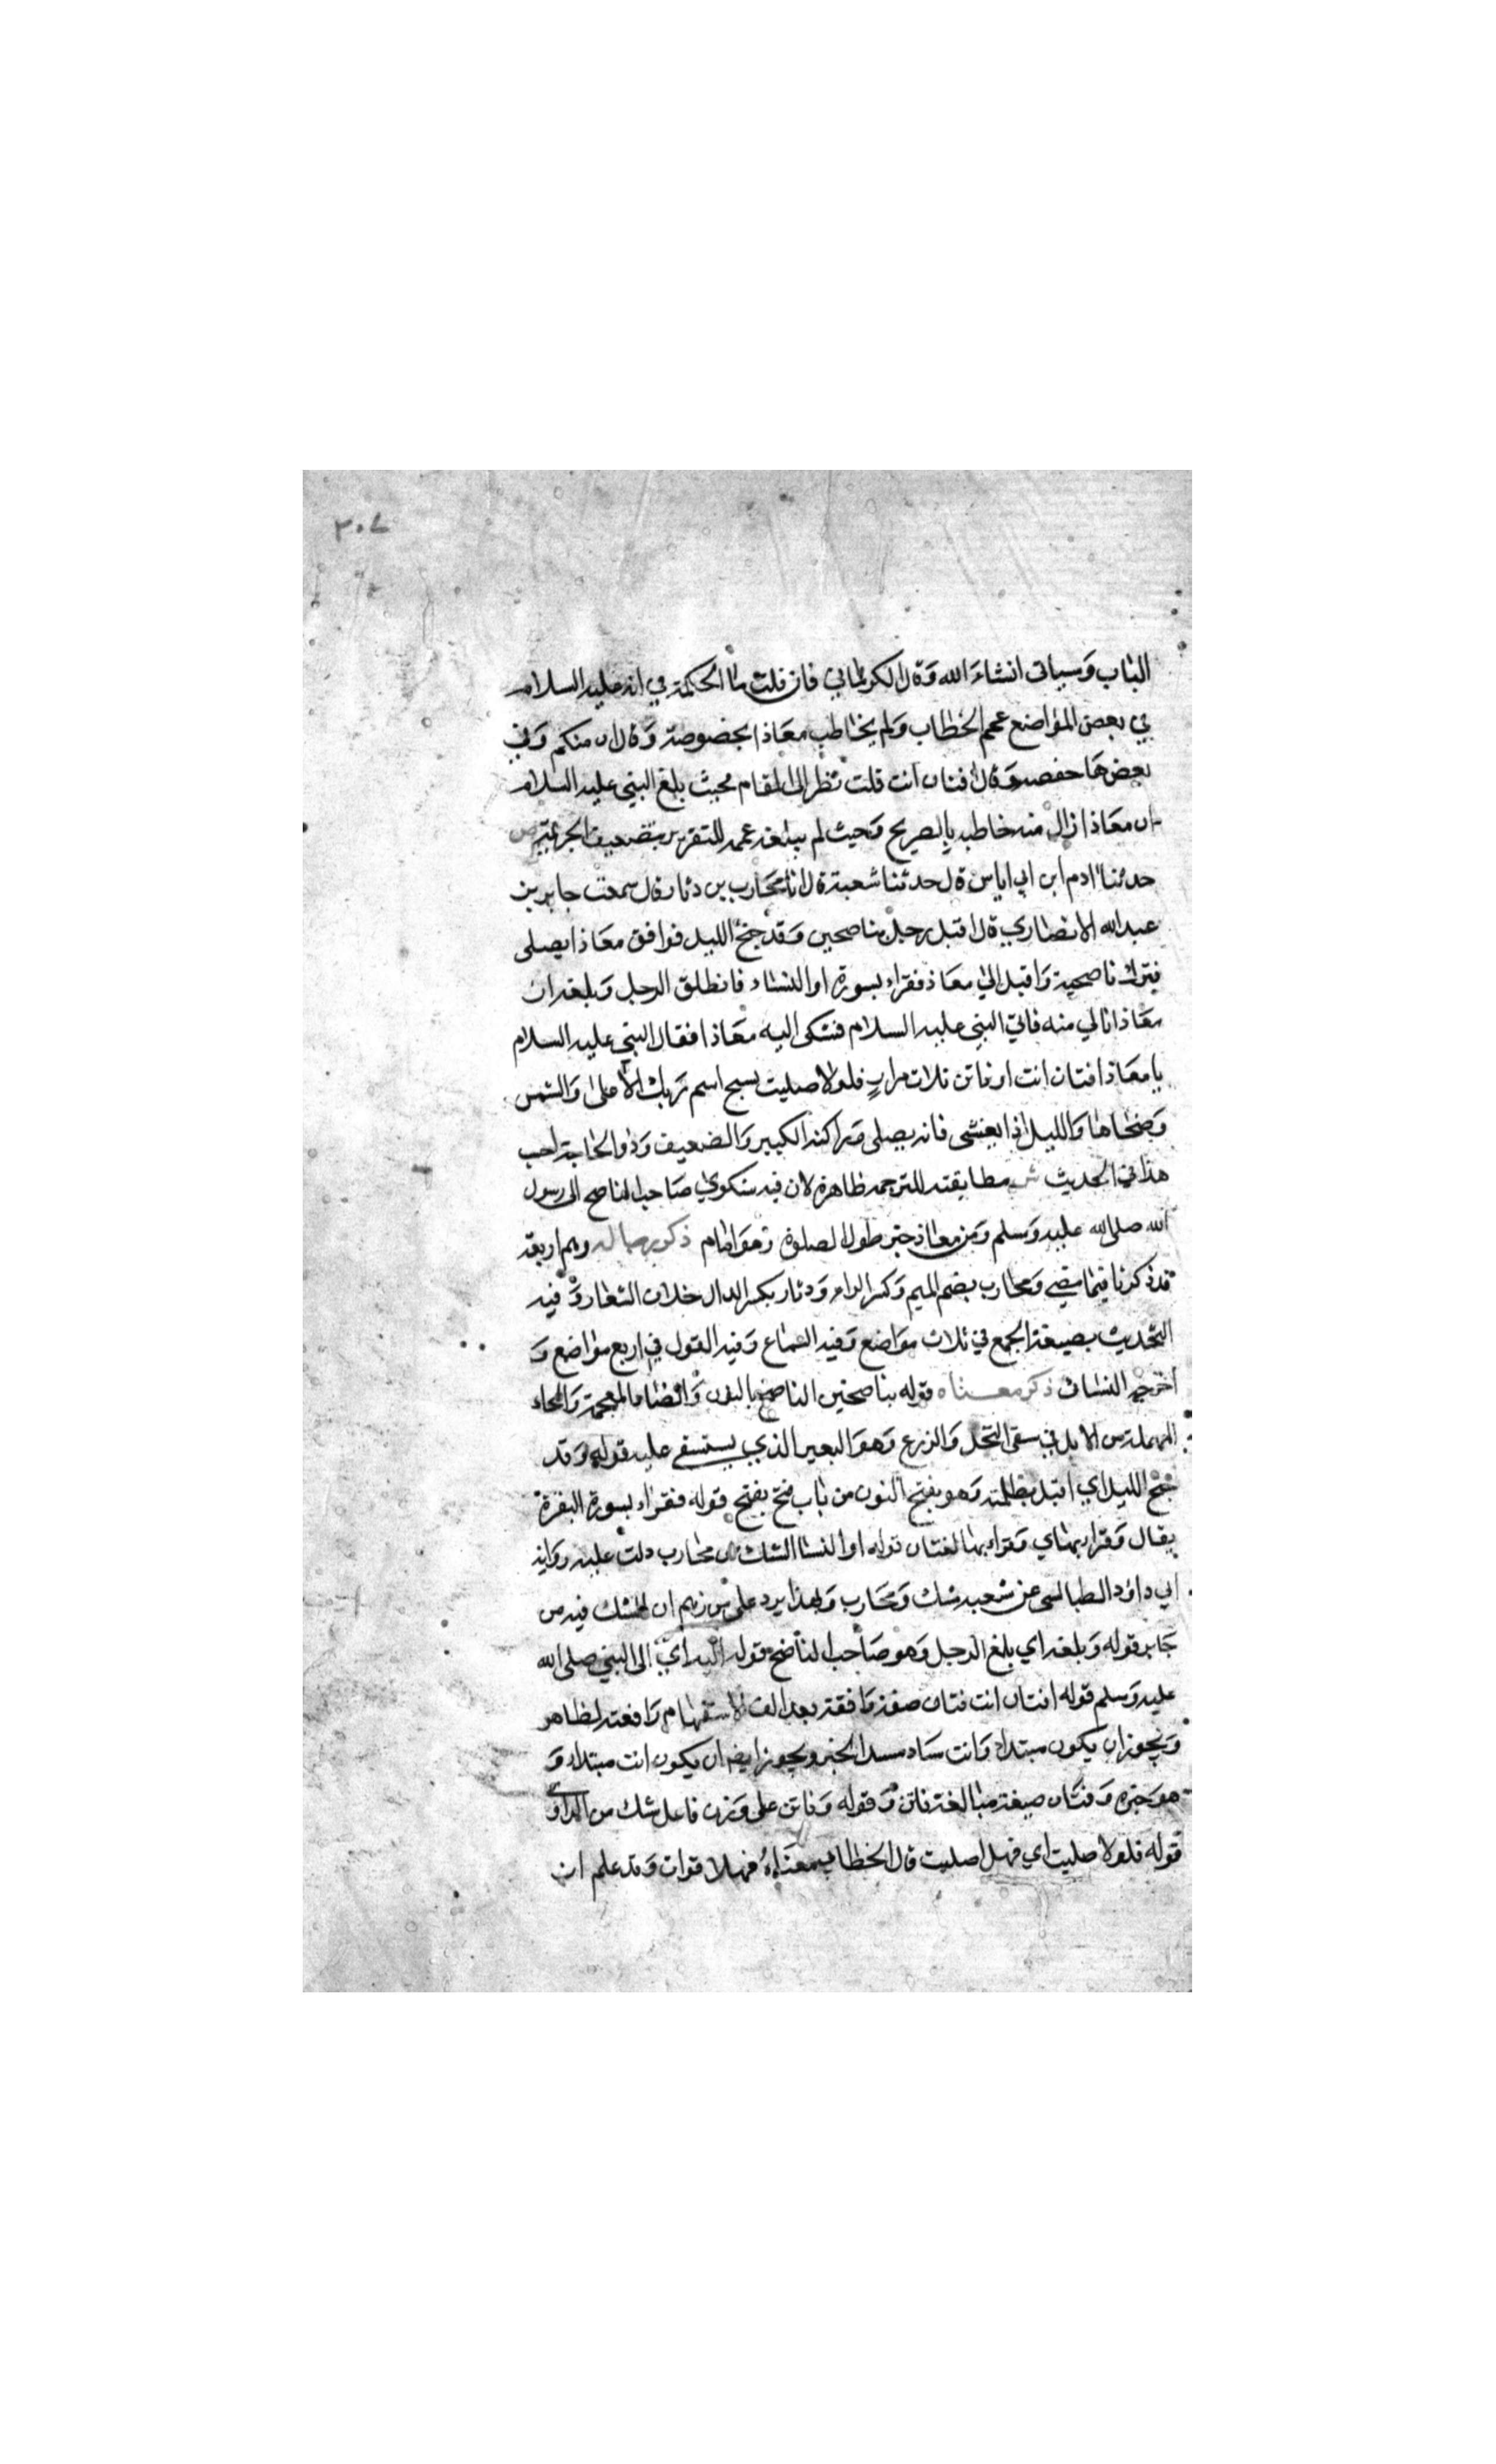 ٣٠٧
الباب وسياتى انشاء الله وقال الكرماني فان قلت ما الحكمة في انه عليه السلام
في بعض المواضع عمم الخطاب ولم يخاطب معاذا بخصوصه وقال ان منكم وفي
بعضها خصصه وقال افتان انت قلت نظر الى المقام فحيث بلغ النبي عليه السلام
ان معاذا نال منه خاطبه بالصريح وحيث لم يبلغه عمم للتقرير بتضعيف الجريمة ص
حدثنا ادم ابن ابي اياس قال حدثنا شعبة قال انا محارب بن دثار قال سمعت جابر بن
عبد الله الانصاري قال اقبل رجل بناضحين وقد جنح الليل فوافق معاذا يصلى
فترك ناضحيه واقبل الى معاذ فقراء بسورة او النساء فانطلق الرجل وبلغه ان
معاذا نال منه فاتى النبي عليه السلام فشكى اليه معاذا فقال النبي عليه السلام
يا معاذ افتان انت او فاتن ثلاث مرار فلولا صليت بسبح اسم ربك الاعلى والشمس
وضحاها والليل اذا يغشى فانه يصلى وراكند الكبير والضعيف وذوالحاجة احب
هذا في الحديث ش مطابقته للترجمه ظاهرة لان فيه شكوي صاحب الناضح الى رسول
الله صلى الله عليه وسلم ومن معاذ حتى طول الصلوة وهو امام ذكر رجاله وهم اربعة
قد ذكرنا فيما مضي ومحارب بضم الميم وكسر الراء ودثار بكسر الدال خلاف الشعار وفيه
التحديث بصيغة الجمع في ثلاث مواضع وفيه السماع وفيه القول في اربع مواضع و
اخرجه النسائ ذكر معناه قوله بناضحين الناضح بالنون والضاد المعجمة والحاء
المهملة من الابل في سقى النخل والزرع وهو البعير الذي يستسقى عليه قوله وقد
جنح الليل اي اقبل بظلمته وهو بفتح النون من باب فتح يفتح قوله فقراء بسورة البقرة
يقال وقراء بهاي وقراء بها لغتان قوله او النسا الشك من محارب دلت عليه رواية
ابي داود الطيالسى عن شعبه شك ومحارب وبهذا يرد على من زعم ان الشك فيه من
جابر قوله وبلغه اي بلغ الرجل وهو صاحب الناضح قوله اليه اي الى النبي صلى الله
عليه وسلم قوله افتان انت فتان صفة وافقة بعد الف الاستفهام رافعة لظاهر
ويجوز ان يكون مبتداء وانت ساد مسد الخبر ويجوز ايضا ان يكون انت مبتداء و
هو خبره وفتان صيغة مبالغة فاتن وقوله وفاتن على وزن فاعل شك من الراوي
قوله فلولا صليت اي فهلا صليت قال الخطابي معناه فهلا قرات وقد علم ان